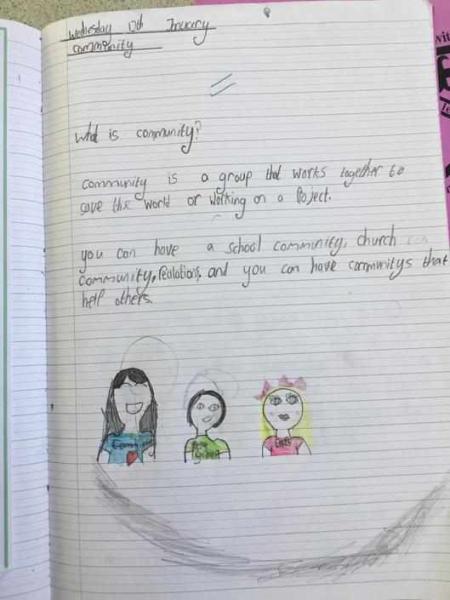 Wednesday 17th January
Community
What is community?
Community is a group that works together to
save the world or working on a Project.
you can have a school community, church
community, Realations, and you can have communitys that
help others.